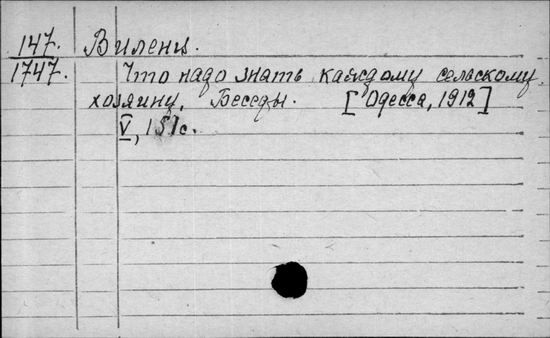 147. Виленц.
1747. Что надо знать каждому сельскому
хозяину. Беседы. [Одесса, 1912]
V, 151с.